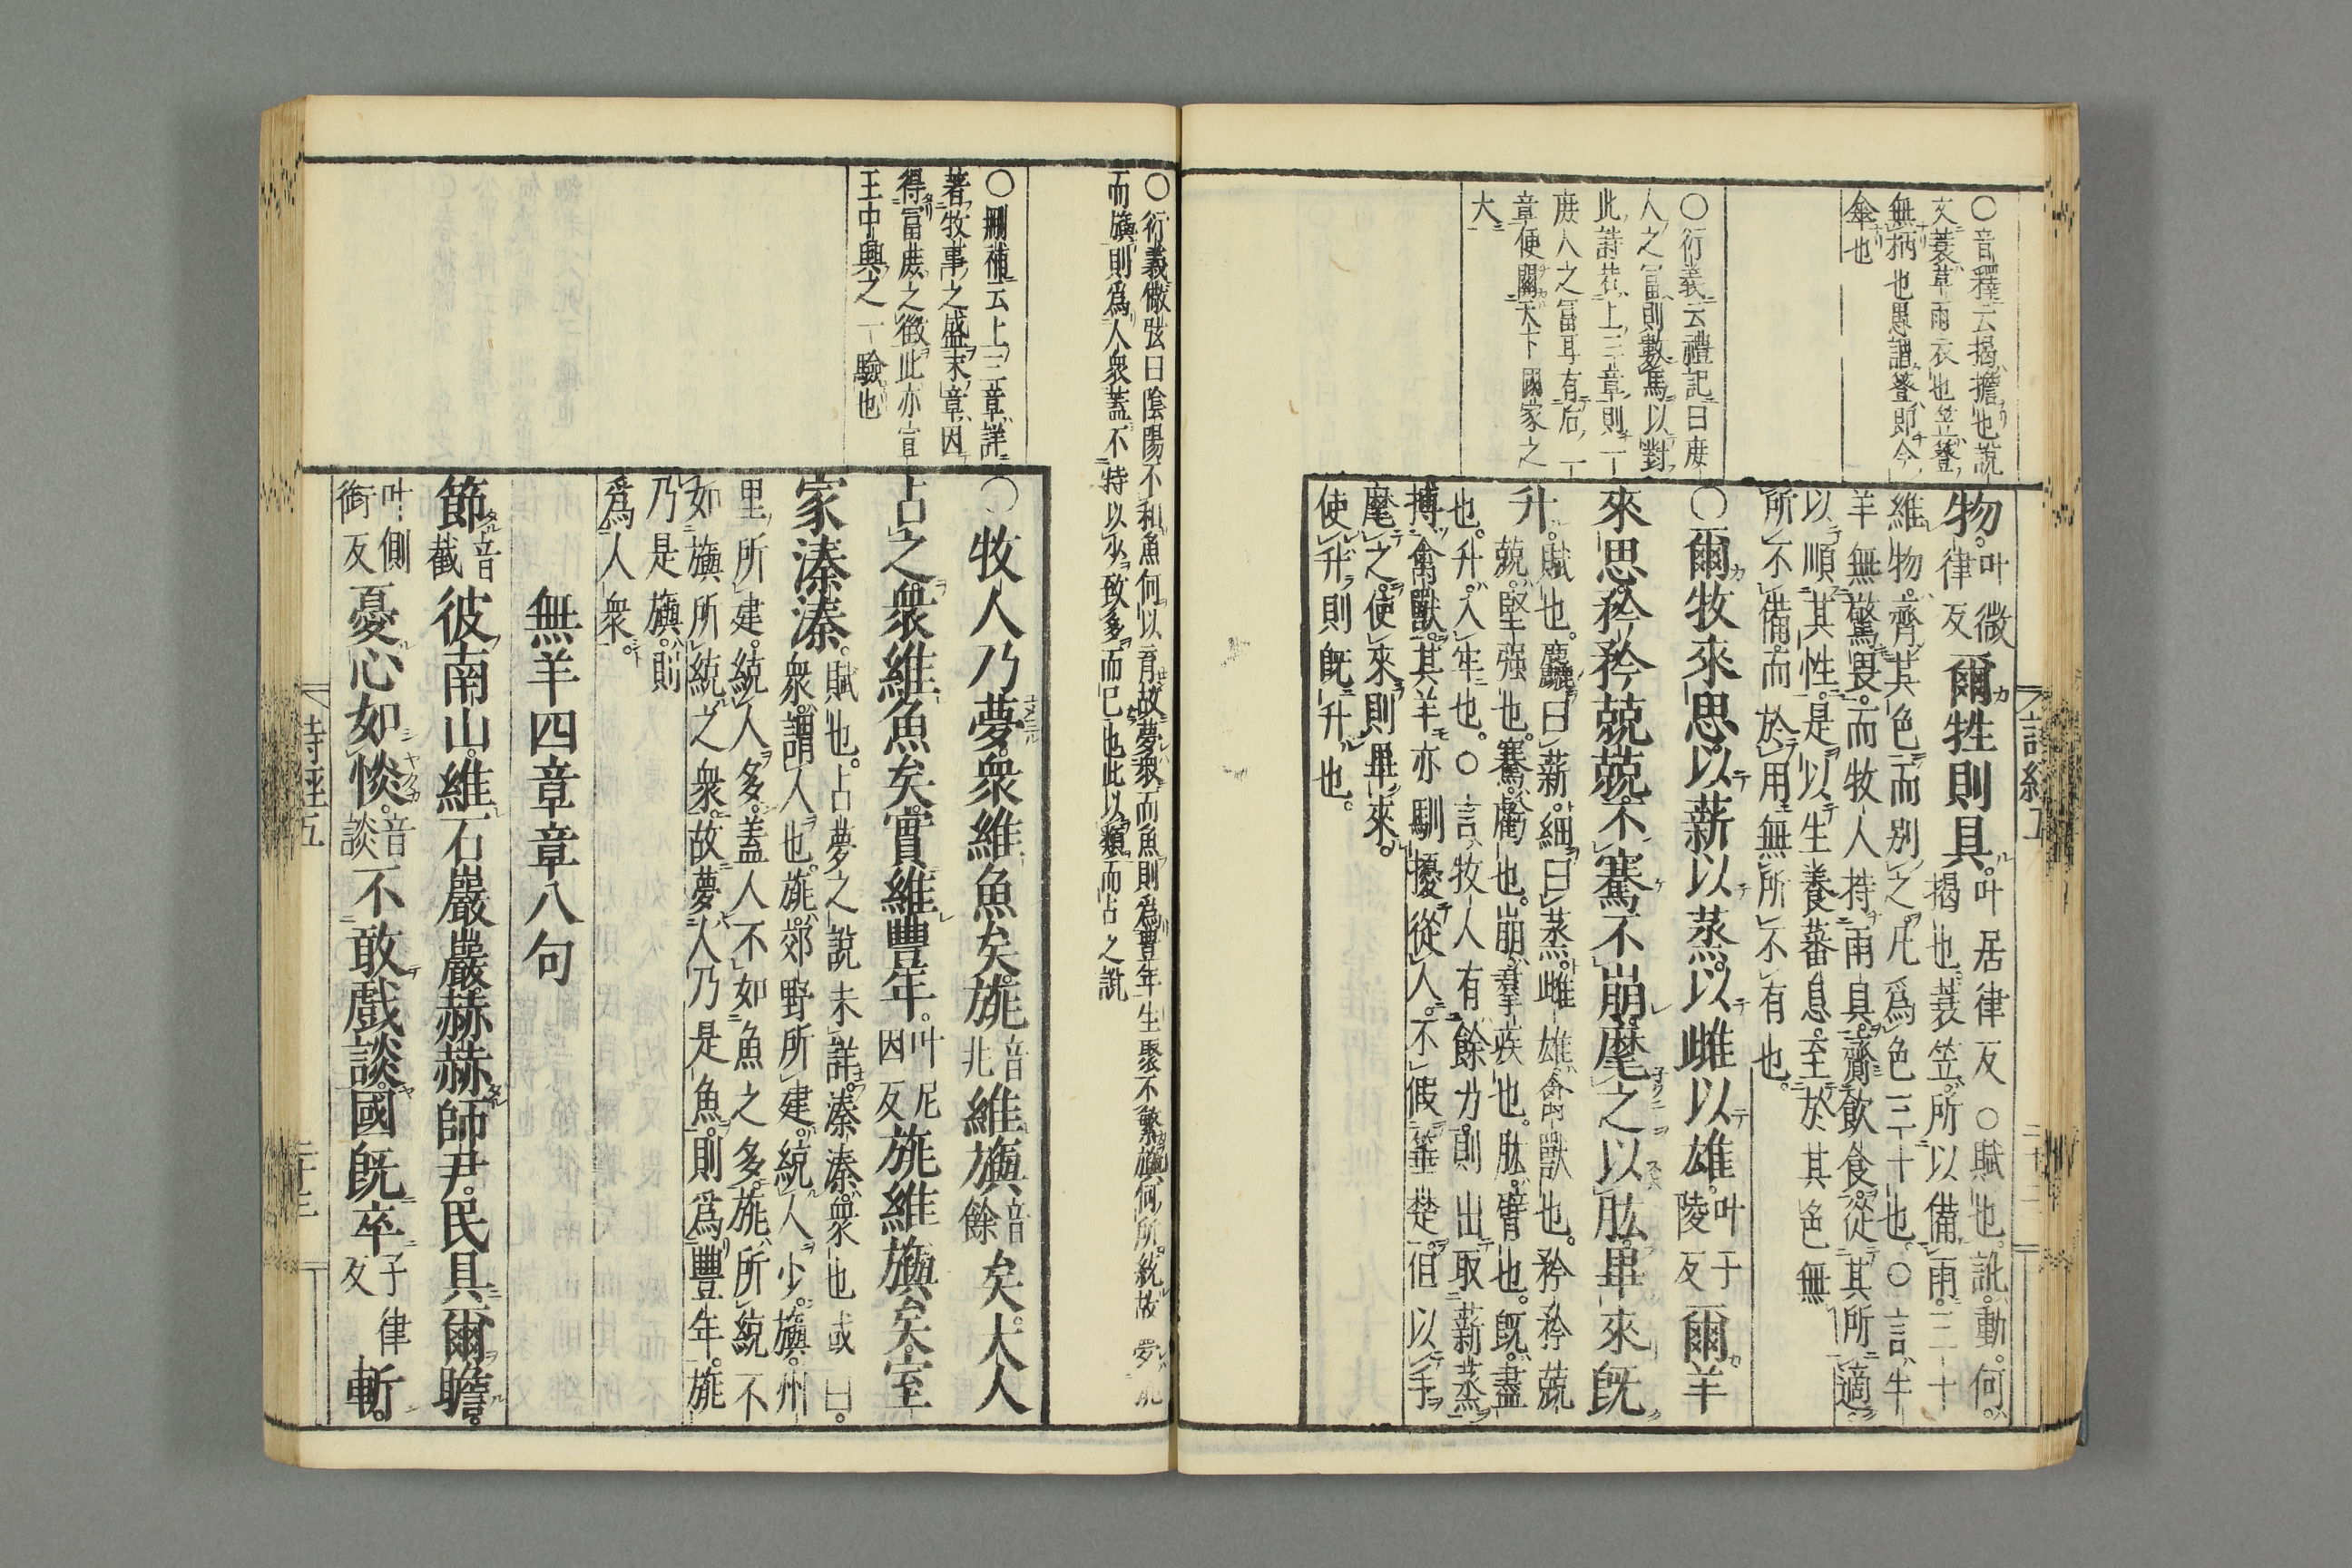 ○音釋云揭擔也說
文蓑草雨衣也笠簦
無柄也愚謂簦即今
傘也
○衍義云禮記曰庶
人之冨則數馬以對
此詩若上三章則一
庶人之冨耳有后一
章便關天下國家之
大
物。叶微律反爾牲則具。叶居律反○賦也。訛。動。何。
揭也。蓑笠。所以備雨。三十
維物。齊其色而別之。凡爲色三十也。○言牛
羊無驚畏。而牧人持雨具。齎飲食。從其所適。
以順其性。是以生養蕃息。至於其色無
所不備。而於用無所不有也。
○爾牧來思。以薪以蒸。以雌以雄。叶于陵反爾羊
來思。矜矜兢兢。不騫不崩。麾之以肱。畢來既
升。賦也。麤曰薪。細曰蒸。雌雄。禽獸也。矜矜兢
兢。堅强也。騫。虧也。崩。羣疾也。肱。臂也。既。盡
也。升。入牢也。○言牧人有餘力。則出取薪蒸
搏禽獸。其羊亦馴擾從人。不假箠楚。但以手
麾之。使來則畢來。
使升則既升也。
詩經五
○衍義倣弦曰陰陽不和魚何以育故夢衆而魚則爲豐年生聚不繁旟何所統故夢旐
而旟則爲人衆蓋不特以少致多而已也此以類而占之說
○刪補云上三章詳
著牧事之盛末章因
得冨庶之徵此亦宣
王中興之一驗也
○牧人乃夢。衆維魚矣。旐音兆維旟音餘矣。大人
占之。衆維魚矣。實維豐年。叶尼因反旐維旟矣。室
家溱溱。賦也。占夢之說未詳。溱溱。衆也。或曰。
衆。謂人也。旐。郊野所建。統人少。旟。州
里所建。統人多。蓋人不如魚之多。旐所統不
如旟所統之衆。故夢人乃是魚。則爲豐年。旐
乃是旟。則
爲人衆。
無羊四章章八句
節音截彼南山。維石巖巖。赫赫師尹。民具爾瞻。
叶側銜反憂心如惔。音談不敢戲談。國既卒子律反斬。
詩經五